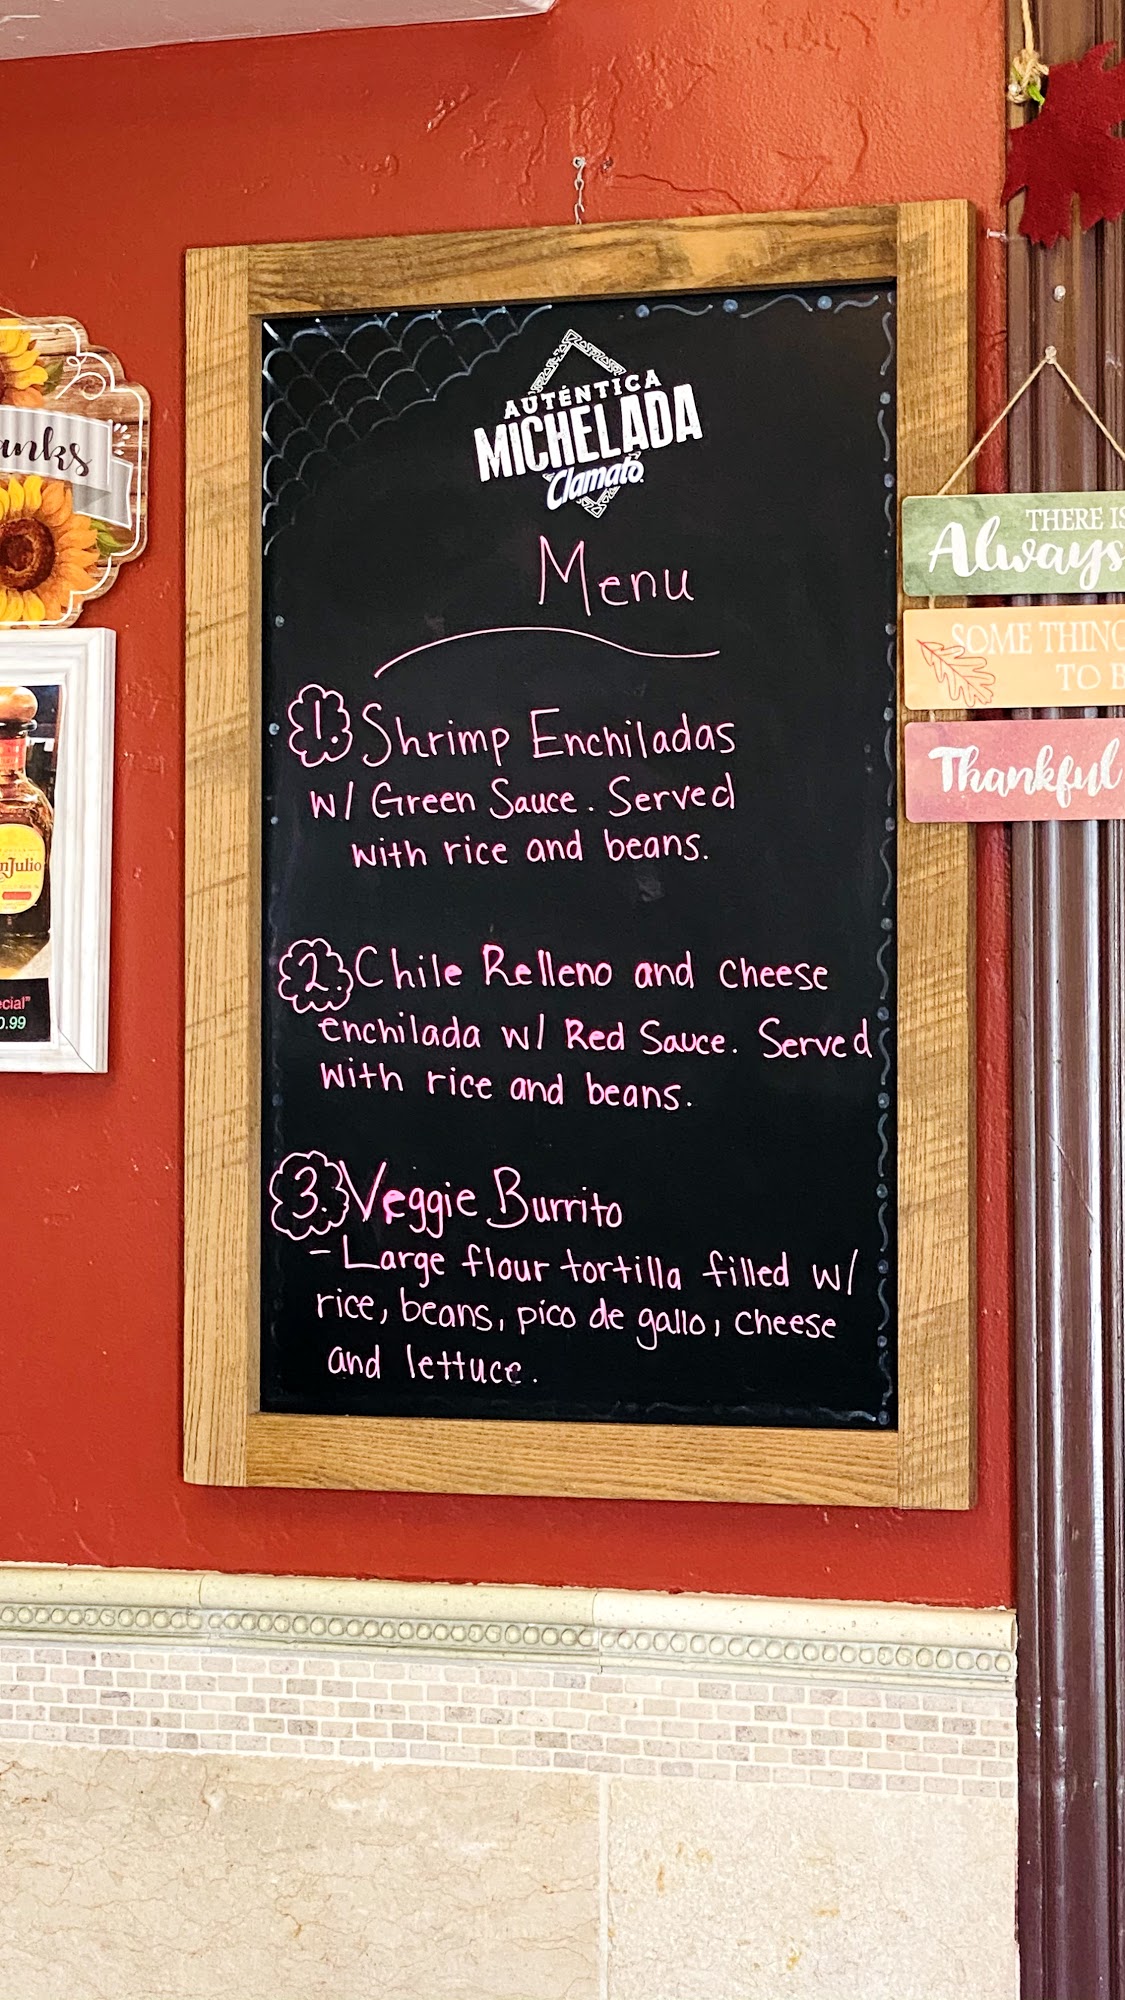 AUTÉNTICA
MICHELADA
Clamato
Menu
1. Shrimp Enchiladas
w/ Green Sauce. Served
with rice and beans.
2. Chile Relleno and cheese
enchilada w/ Red Sauce. Served
with rice and beans.
3. Veggie Burrito
- Large flour tortilla filled w/
rice, beans, pico de gallo, cheese
and lettuce.
THERE IS
Always
SOME THING
TO B
Thankful
anks
nJulio
ecial"
0.99